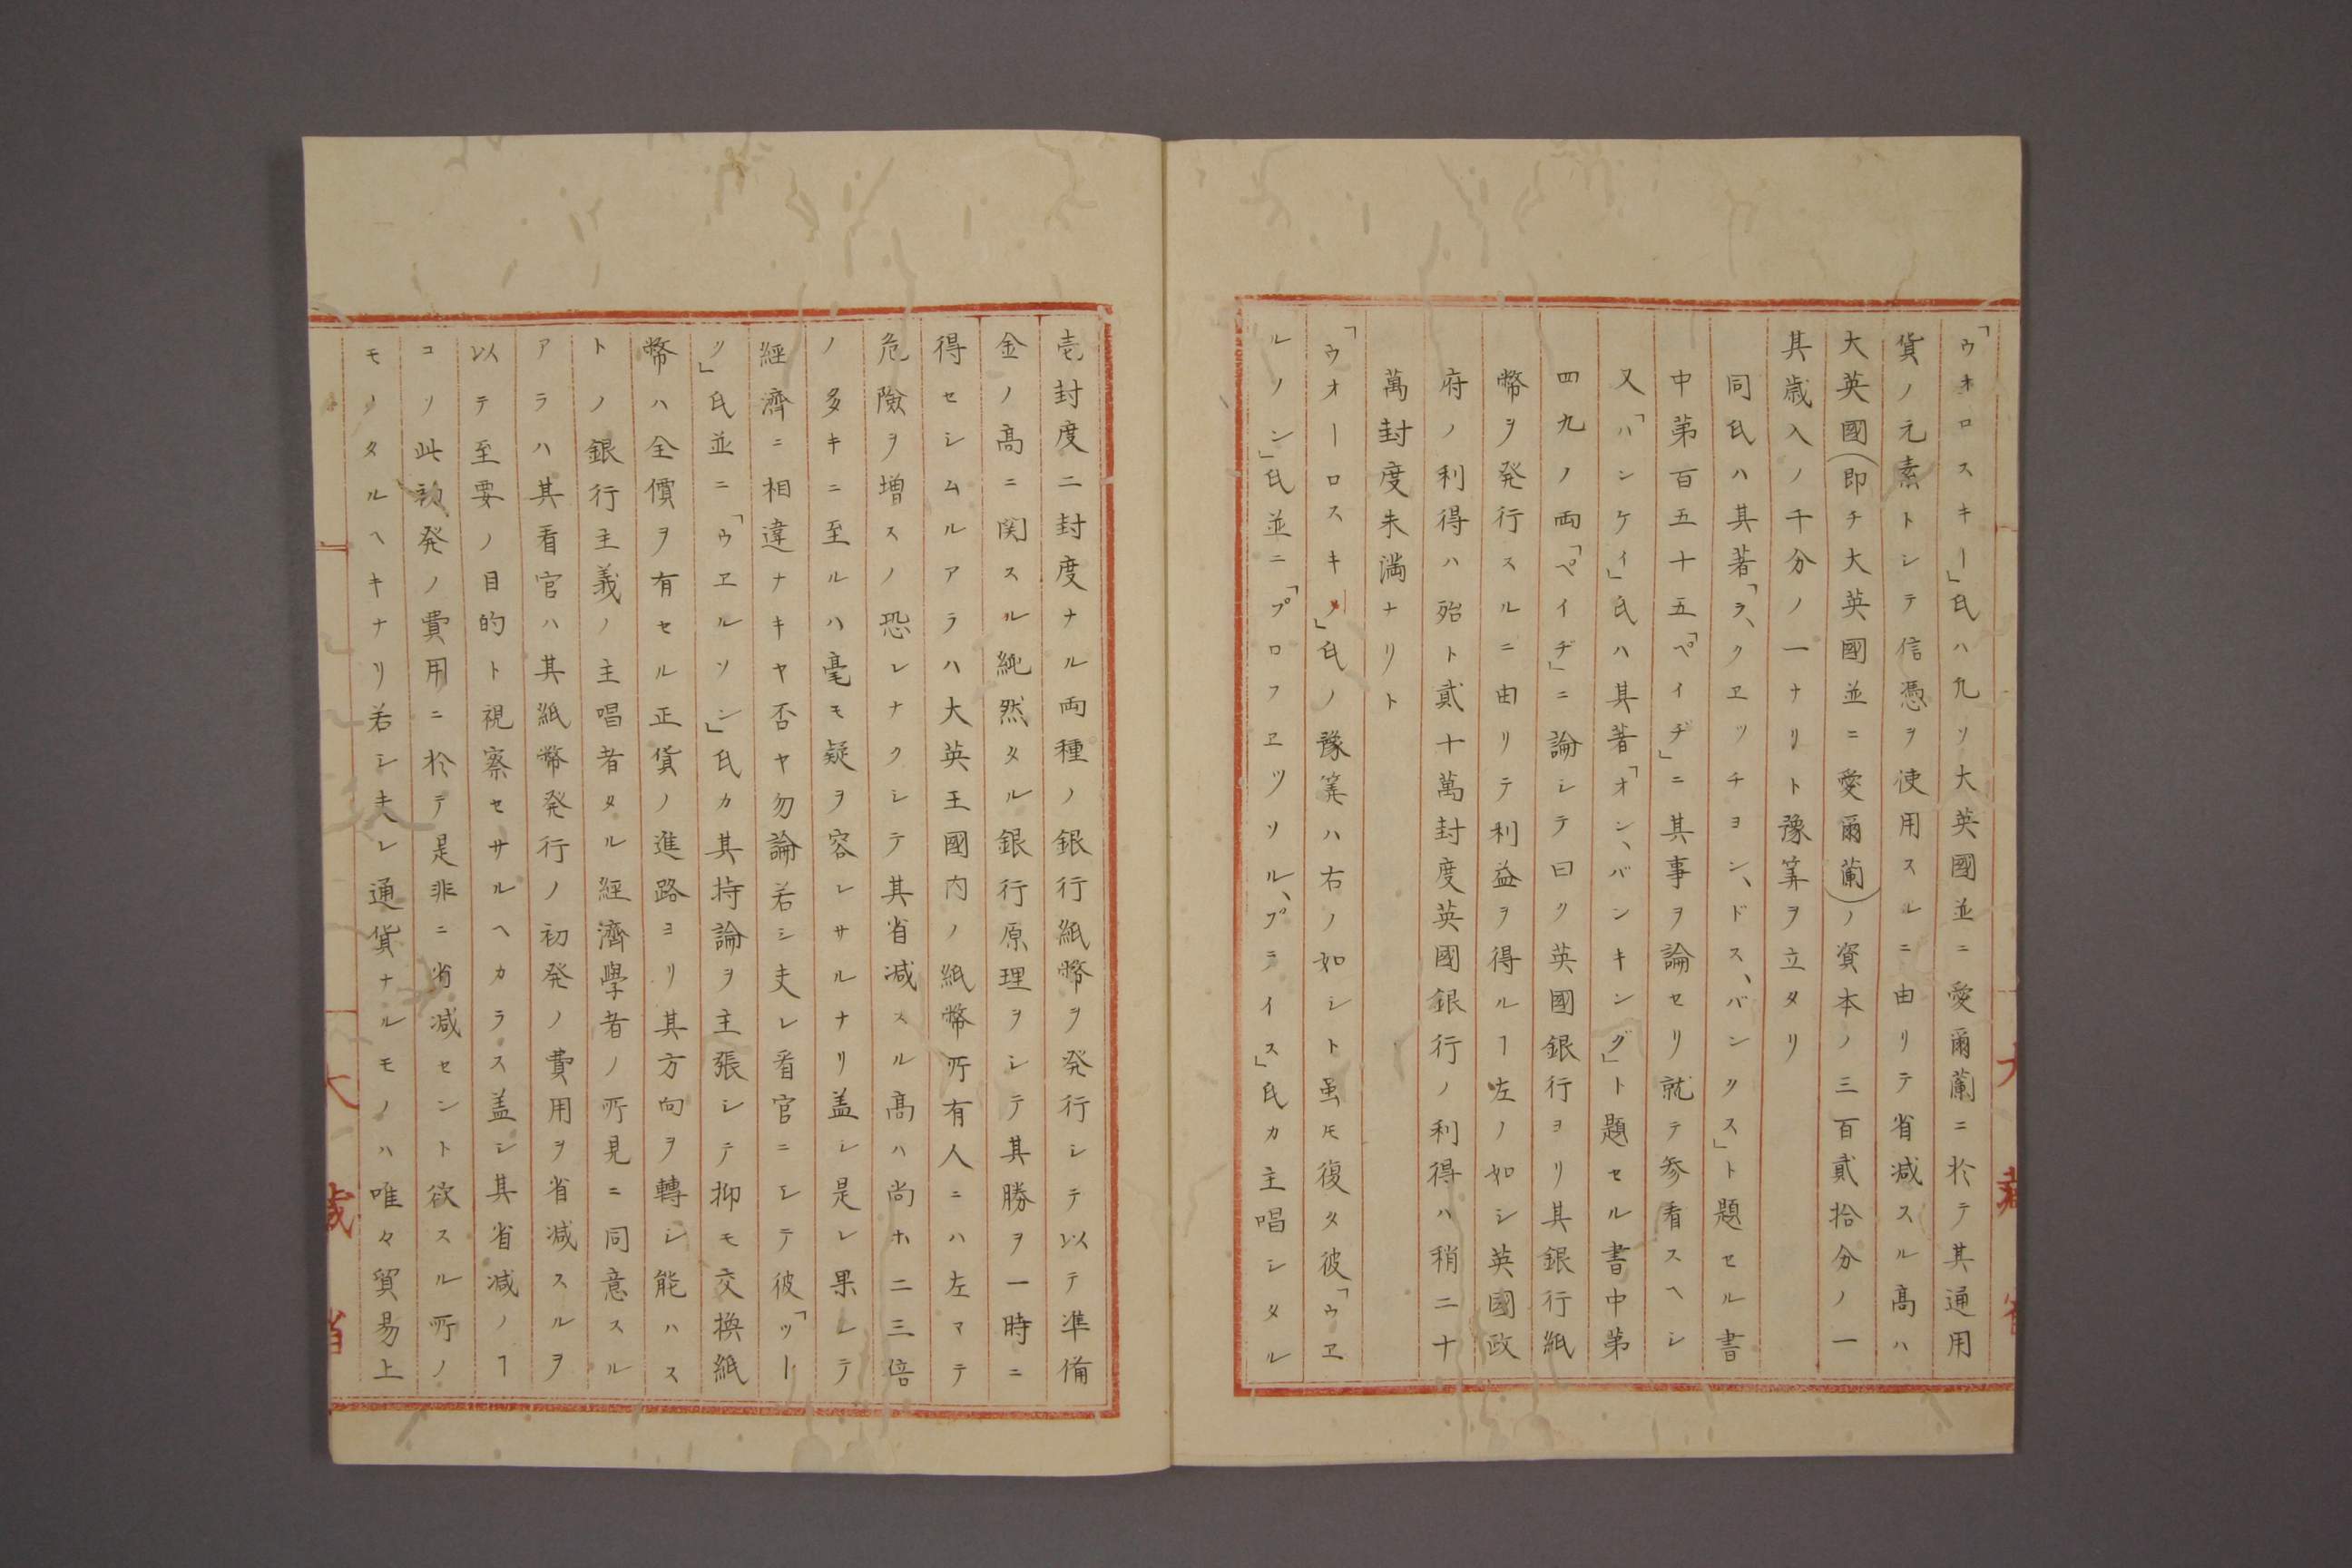 「ウオロスキー」氏ハ凡ソ大英國並ニ愛爾蘭ニ於テ其通用
貨ノ元素トシテ信憑ヲ使用スルニ由リテ省減スル高ハ
大英國(即チ大英國並ニ愛爾蘭)ノ資本ノ三百貳拾分ノ一
其歳入ノ千分ノ一ナリト豫筭ヲ立タリ
同氏ハ其著「ラ、クヱッチヨン、ドス、バンクス」ト題セル書
中第百五十五「ペイヂ」ニ其事ヲ論セリ就テ参看スヘシ
又「ハンケイ」氏ハ其著「オン、バンキング」ト題セル書中第
四九ノ両「ペイヂ」ニ論シテ曰ク英國銀行ヨリ其銀行紙
幣ヲ発行スルニ由リテ利益ヲ得ルヿ左ノ如シ英國政
府ノ利得ハ殆ト貳十萬封度英國銀行ノ利得ハ稍二十
萬封度未満ナリト
「ウオーロスキー」氏ノ豫筭ハ右ノ如シト虽𪜈復タ彼「ウヱ
ルソン」氏並ニ「プロフヱッソル、プライス」氏カ主唱シタル
壱封度二封度ナル両種ノ銀行紙幣ヲ発行シテ以テ準備
金ノ高ニ関スル純然タル銀行原理ヲシテ其勝ヲ一時ニ
得セシムルアラハ大英王國内ノ紙幣所有人ニハ左マテ
危險ヲ増スノ恐レナクシテ其省減スル高ハ尚ホ二三倍
ノ多キニ至ルハ毫モ疑ヲ容レサルナリ盖シ是レ果シテ
經濟ニ相違ナキヤ否ヤ勿論若シ夫レ看官ニシテ彼「ツー
ク」氏並ニ「ウヱルソン」氏カ其持論ヲ主張シテ抑モ交換紙
幣ハ全價ヲ有セル正貨ノ進路ヨリ其方向ヲ轉シ能ハス
トノ銀行主義ノ主唱者タル經濟學者ノ所見ニ同意スル
アラハ其看官ハ其紙幣発行ノ初発ノ費用ヲ省減スルヲ
以テ至要ノ目的ト視察セサルヘカラス盖シ其省減ノヿ
コソ此初発ノ費用ニ於テ是非ニ省減セント欲スル所ノ
モノタルヘキナリ若シ夫レ通貨ナルモノハ唯々貿易上
大藏省